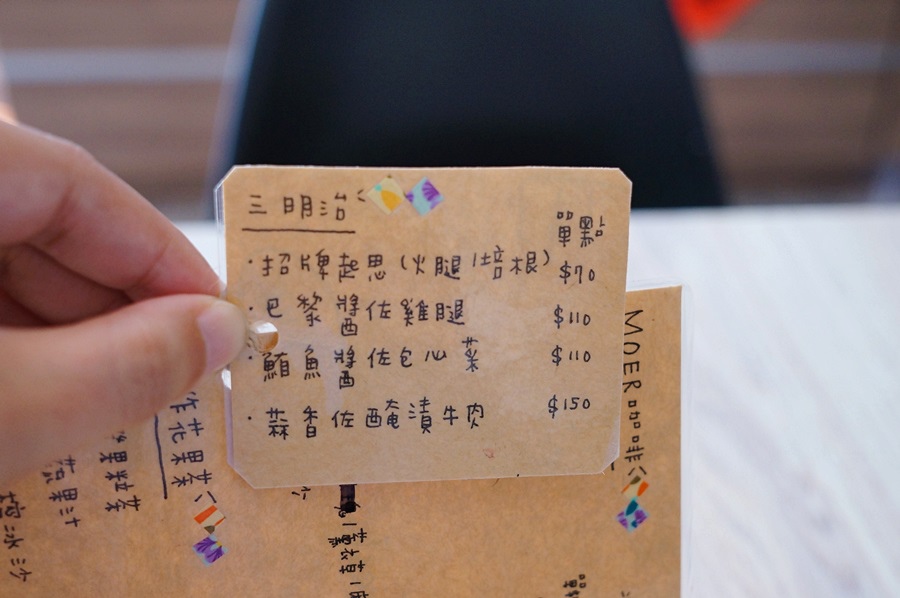 三明治 單點
·招牌起思(火腿/培根) $70
·巴黎醬佐雞腿 $110
·鮪魚醬佐包心菜 $110
·蒜香佐醃漬牛肉 $150
MOER咖啡
花果茶
果粒茶
果汁
冰沙